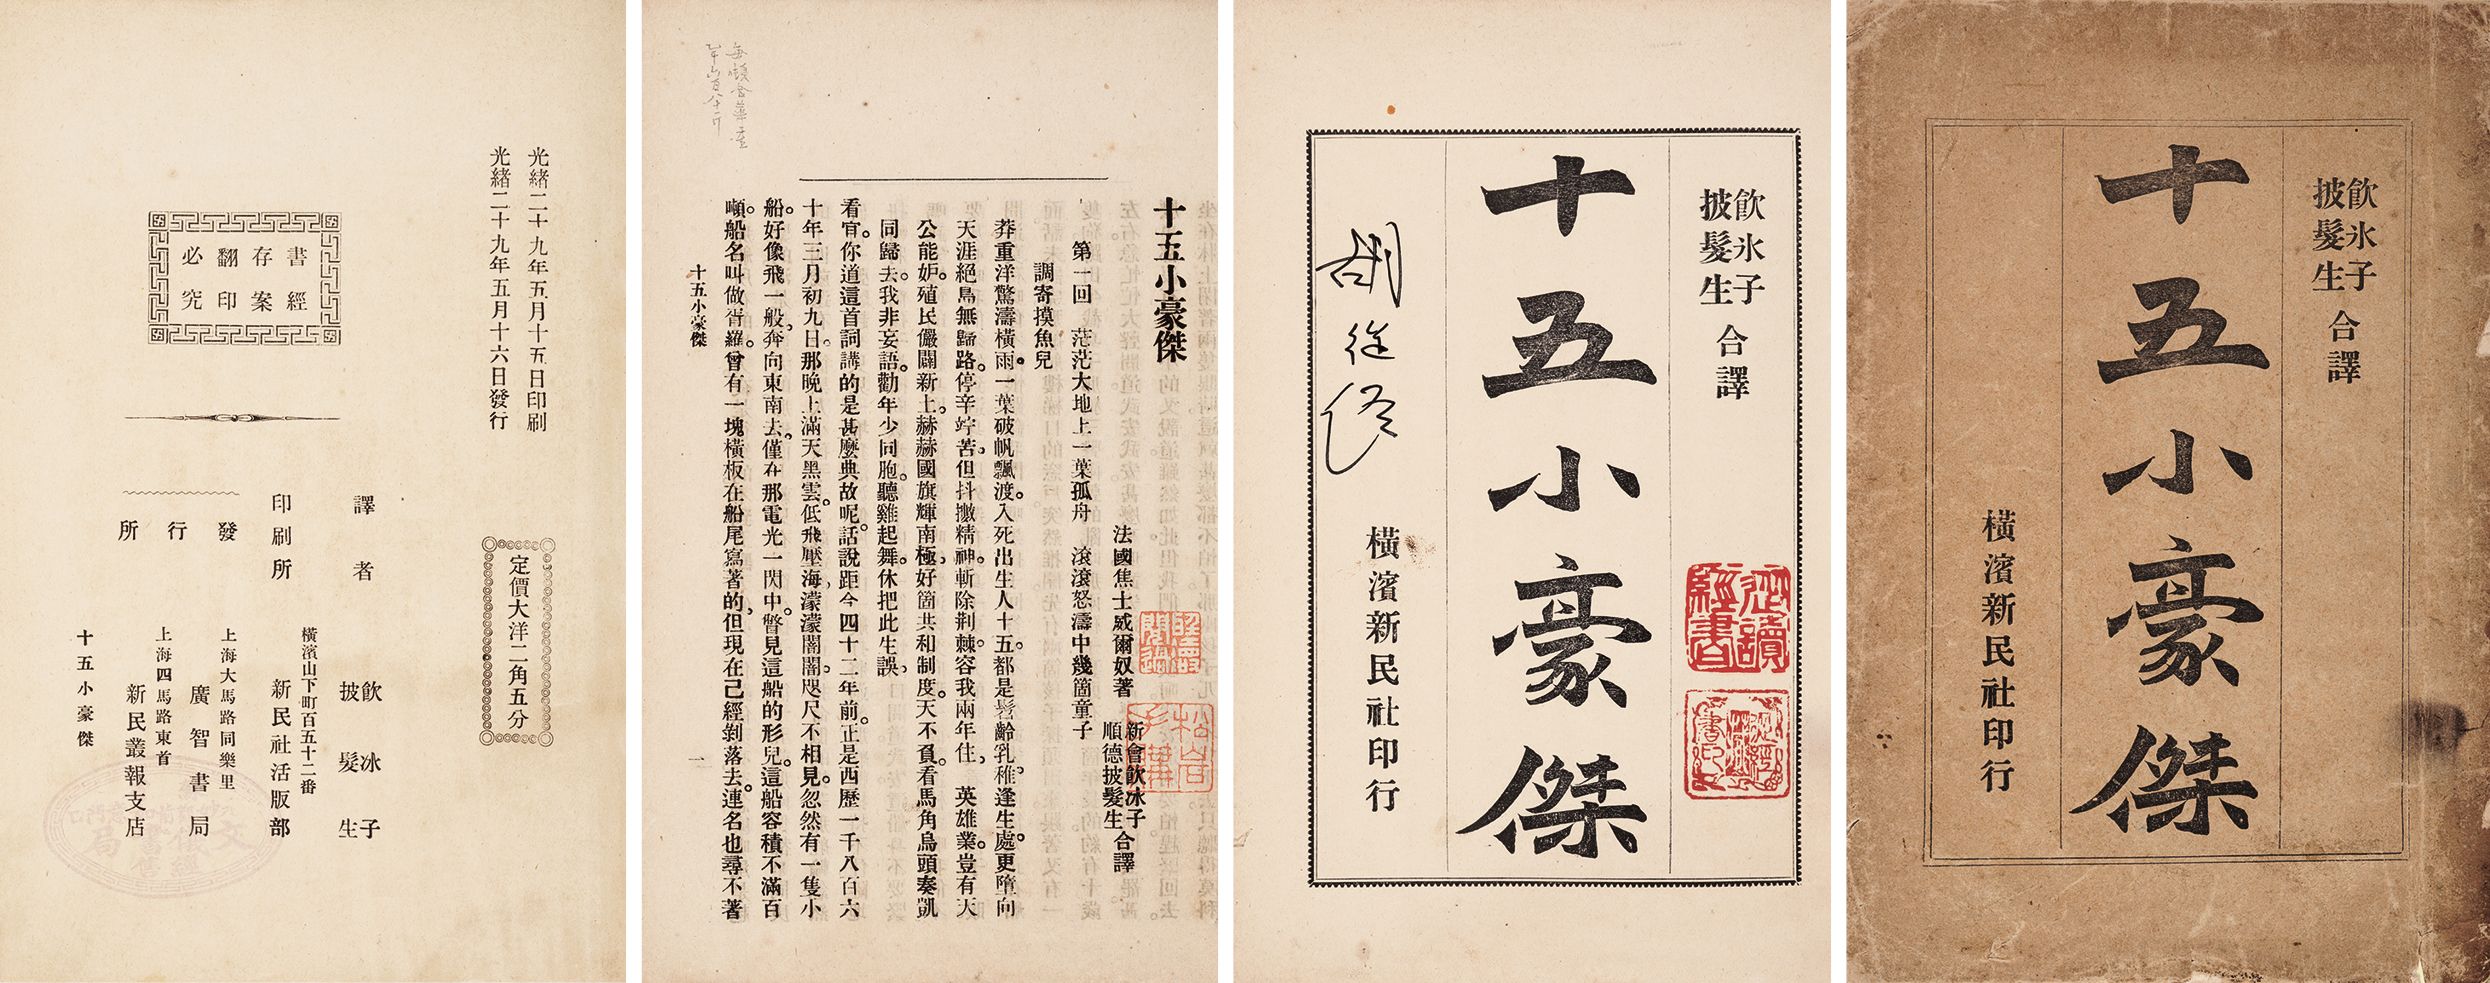 飲氷子
披髮生
合譯
十五小豪傑
橫濱新民社印行
飲氷子
披髮生
合譯
十五小豪傑
橫濱新民社印行
胡從經
十五小豪傑
法國焦士威爾奴著
新會飲冰子
順德披髮生
合譯
第一回　茫茫大地上一葉孤舟　滾滾怒濤中幾箇童子
調寄摸魚兒
莽重洋驚濤橫雨。一葉破帆飄渡。入死出生人十五。都是髫齡乳稚。逢生處。更墮向
天涯絕島無歸路。停辛竚苦。但抖擻精神。斬除荆棘。容我兩年住。　英雄業。豈有天
公能妒。殖民儼闢新土。赫赫國旗輝南極。好箇共和制度。天不負。看馬角烏頭奏凱
同歸去。我非妄語。勸年少同胞。聽雞起舞。休把此生誤。
看官。你道這首詞講的是甚麼典故呢。話說距今四十二年前。正是西歷一千八百六
十年三月初九日。那晚上滿天黑雲。低飛壓海。濛濛闇闇。咫尺不相見。忽然有一隻小
船。好像飛一般。奔向東南去。僅在那電光一閃中。瞥見這船的形兒。這船容積不滿百
噸。船名叫做胥羅。曾有一塊橫板在船尾寫著的。但現在已經剝落去。連名也尋不著
十五小豪傑
一
光緒二十九年五月十五日印刷
光緒二十九年五月十六日發行
書經
存案
翻印
必究
定價大洋二角五分
譯者
飲冰子
披髮生
印刷所
橫濱山下町百五十二番
新民社活版部
發行所
上海大馬路同樂里
廣智書局
上海四馬路東首
新民叢報支店
十五小豪傑